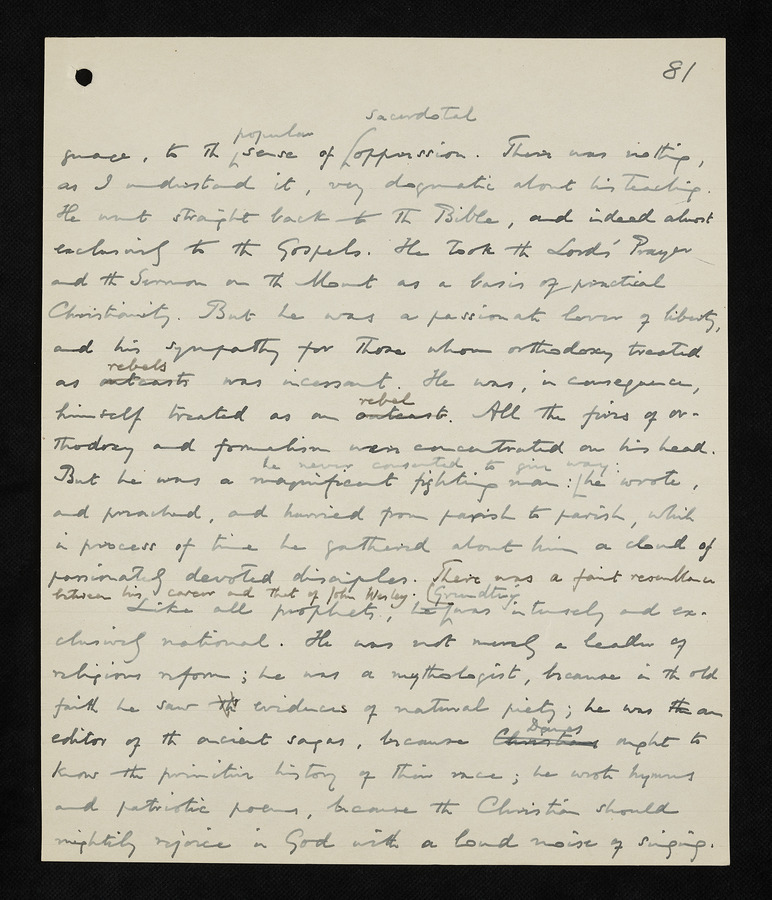 81
sacerdotal
popular
guage, to the sense of oppression. There was nothing,
as I understand it, very dogmatic about his teaching.
He went straight back to the Bible, and indeed almost
exclusively to the Gospels. He took the Lord's Prayer
and the Sermon on the Mount as a basis of practical
Christianity. But he was a passionate lover of liberty,
and his sympathy for those whom orthodoxy treated
rebels
as outcasts was incessant. He was, in consequence,
rebel
himself treated as an outcast. All the fires of or-
thodoxy and formalism were concentrated on his head.
he never consented to give way:
But he was a magnificent fighting man: he wrote,
and preached, and hurried from parish to parish, while
in process of time he gathered about him a cloud of
passionately devoted disciples. There was a faint resemblance
between his career and that of John Wesley. Grundtvig
Like all prophets, he was intensely and ex-
clusively national. He was not merely a leader of
religious reform; he was a mythologist, because in the old
faith he saw the evidences of natural piety; he was the an
Danes
editor of the ancient sagas, because Christians ought to
know the primitive history of their race; he wrote hymns
and patriotic poems, because the Christian should
mightily rejoice in God with a loud noise of singing.